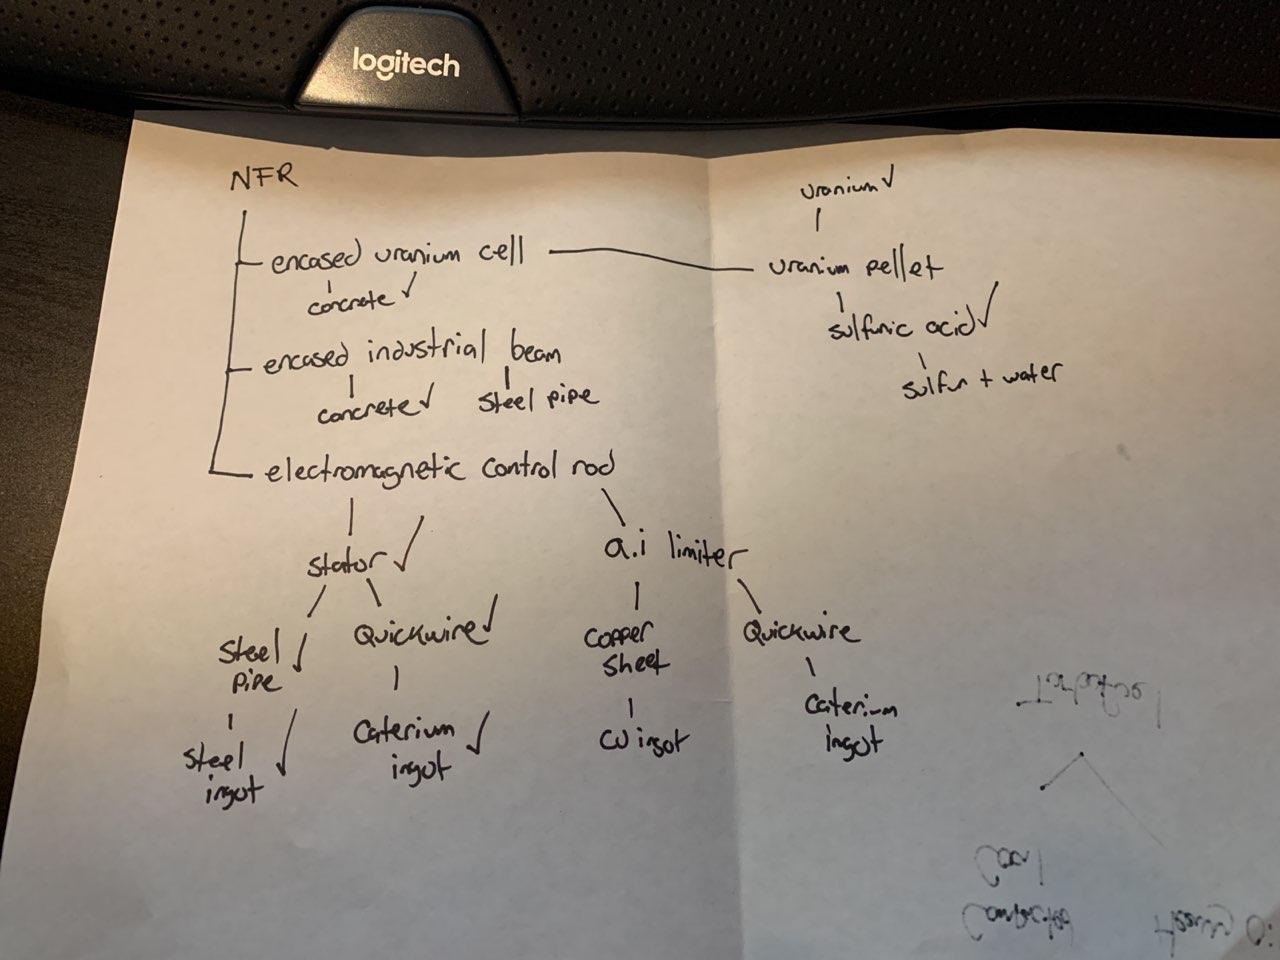 logitech
NFR
uranium✓
encased uranium cell
uranium pellet
concrete ✓
sulfuric acid✓
encased industrial beam
sulfur + water
concrete✓
Steel pipe
electromagnetic control rod
stator✓
a.i limiter
Steel
pipe ✓
Quickwire✓
Copper
Sheet
Quickwire
Steel
ingot ✓
Caterium
ingot ✓
CU ingot
Caterium
ingot